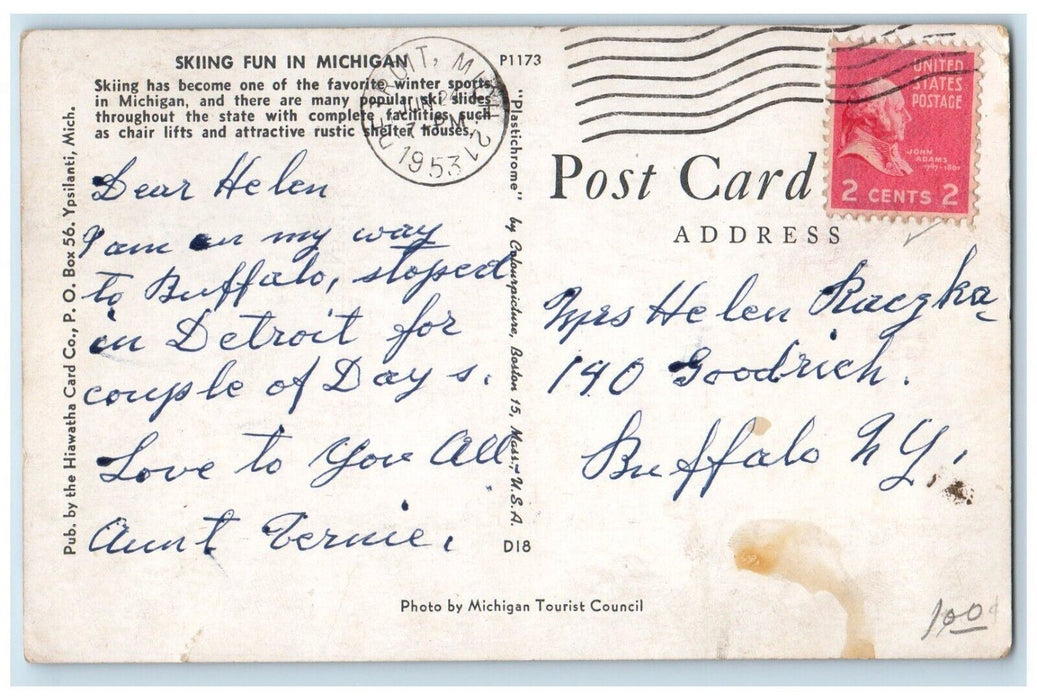 SKIING FUN IN MICHIGAN
P1173
Skiing has become one of the favorite winter sports
in Michigan, and there are many popular ski slides
throughout the state with complete facilities such
as chair lifts and attractive rustic shelter houses.
DETROIT, MICH. 12
JUN 24
7 PM
1953
UNITED
STATES
POSTAGE
JOHN
ADAMS
1797-1801
2 CENTS 2
Post Card
ADDRESS
Dear Helen
I am on my way
to Buffalo, stoped
in Detroit for
couple of Days.
Love to You All
Aunt Vernie.
Mrs Helen Raczka
140 Goodrich.
Buffalo N Y.
Pub. by the Hiawatha Card Co., P. O. Box 56. Ypsilanti, Mich.
"Plastichrome" by Colourpicture, Boston 15, Mass., U.S.A.
D18
Photo by Michigan Tourist Council
100